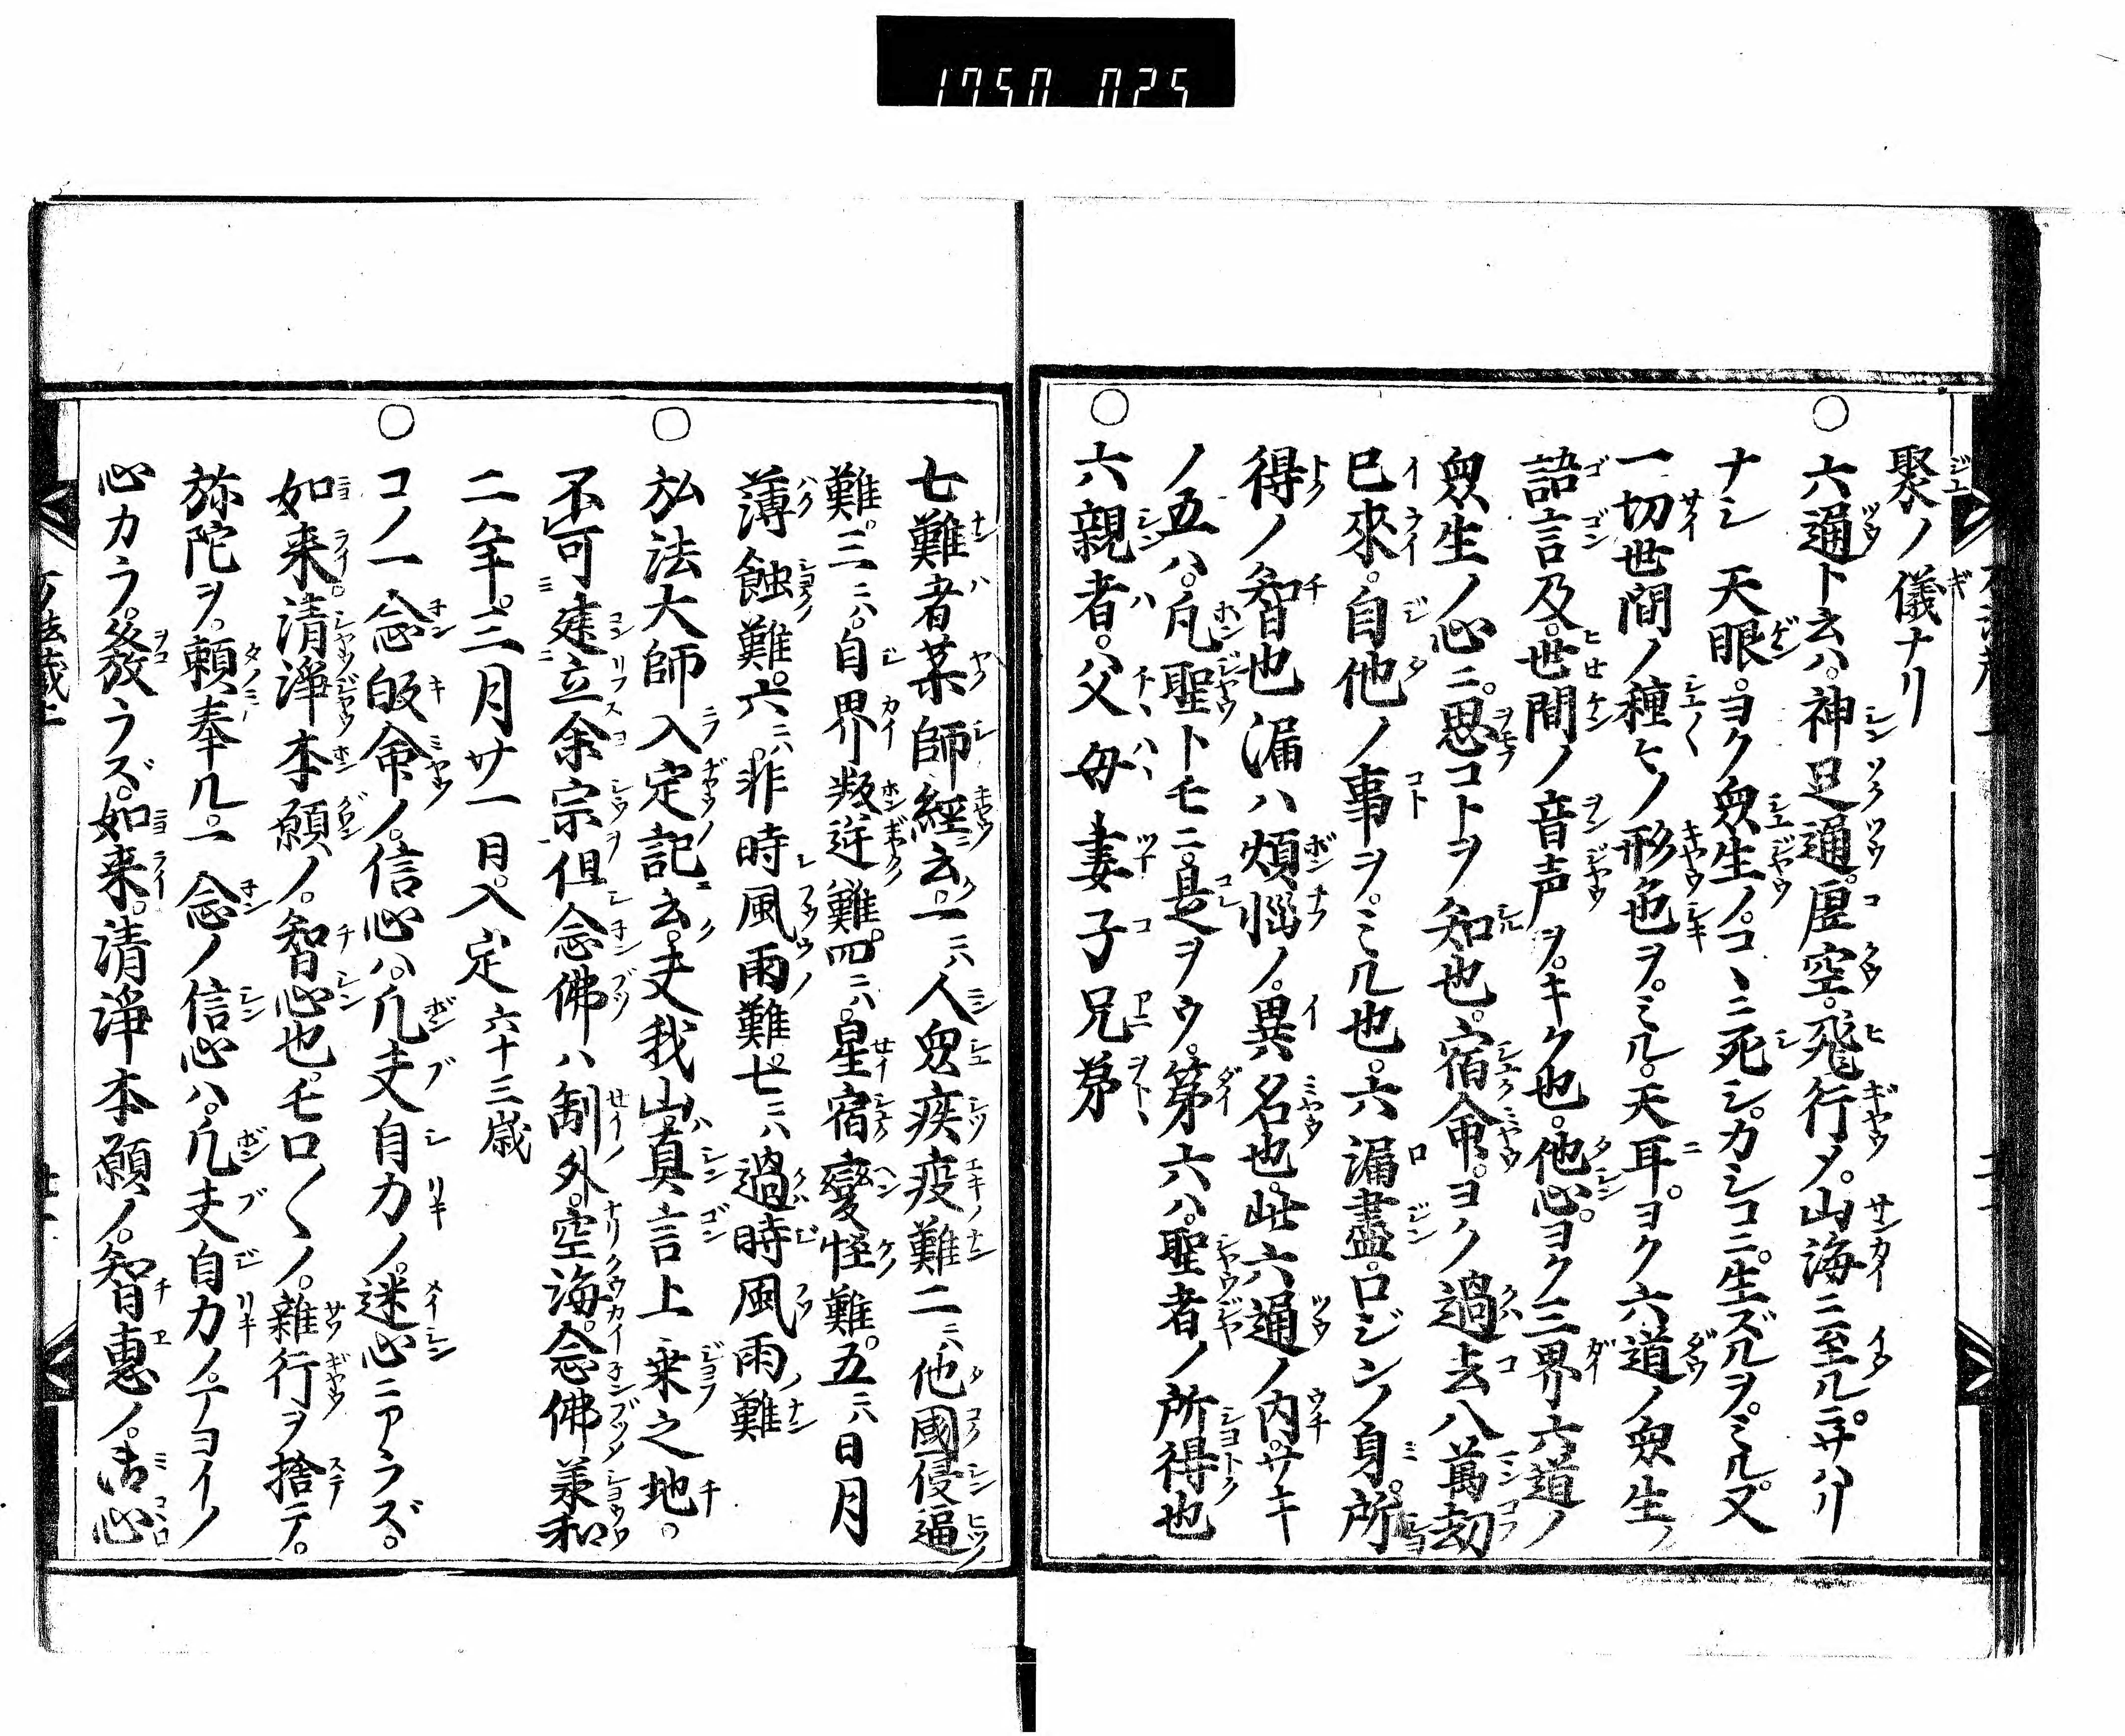 1750 025
聚ノ儀ナリ
○六通ト云ハ。神足通。虚空。飛行メ。山海ニ至ルニ。サハリ
ナシ 天眼。ヨク衆生ノ。コヽニ死シ。カシコニ。生ズルヲ。ミル。又
一切世間ノ種ヒノ形色ヲ。ミル。天耳。ヨク六道ノ衆生ノ
語言及。世間ノ音声ヲ。キク也。他心。ヨク三界六道ノ
衆生ノ心ニ。思コトヲ知也。宿命。ヨク過去八萬劫
巳來。自他ノ事ヲ。ミル也。六漏盡。ロジンノ身。所
得ノ智也漏ハ煩惱ノ。異名也。此六通ノ内。サキ
ノ五ハ。凡聖トモニ。是ヲウ。第六ハ。聖者ノ所得也
○六親者。父母妻子兄弟
七難者薬師經云。一ニハ人衆疾疫難二ニハ他國侵逼
難。三ニハ。自界叛逆難。四ニハ。星宿變怪難。五ニハ日月
薄蝕難。六ニハ。非時風雨難。七ニハ過時風雨難
○弘法大師入定記云。夫我山真言上乗之地。
不可建立余宗但念佛ハ制外。空海。念佛。承和
二年。三月廿一日。入定六十三歳
○コノ一念皈命ノ。信心ハ。凡夫自力ノ。迷心ニアラズ。
如来。清淨本願ノ。智心也。モロ〱ノ。雜行ヲ捨テ。
弥陀ヲ。頼奉ル。一念ノ信心ハ。凡夫自力ノ。テヨイノ
心カラ。發ラズ。如来。清淨本願ノ。智惠ノ。御心